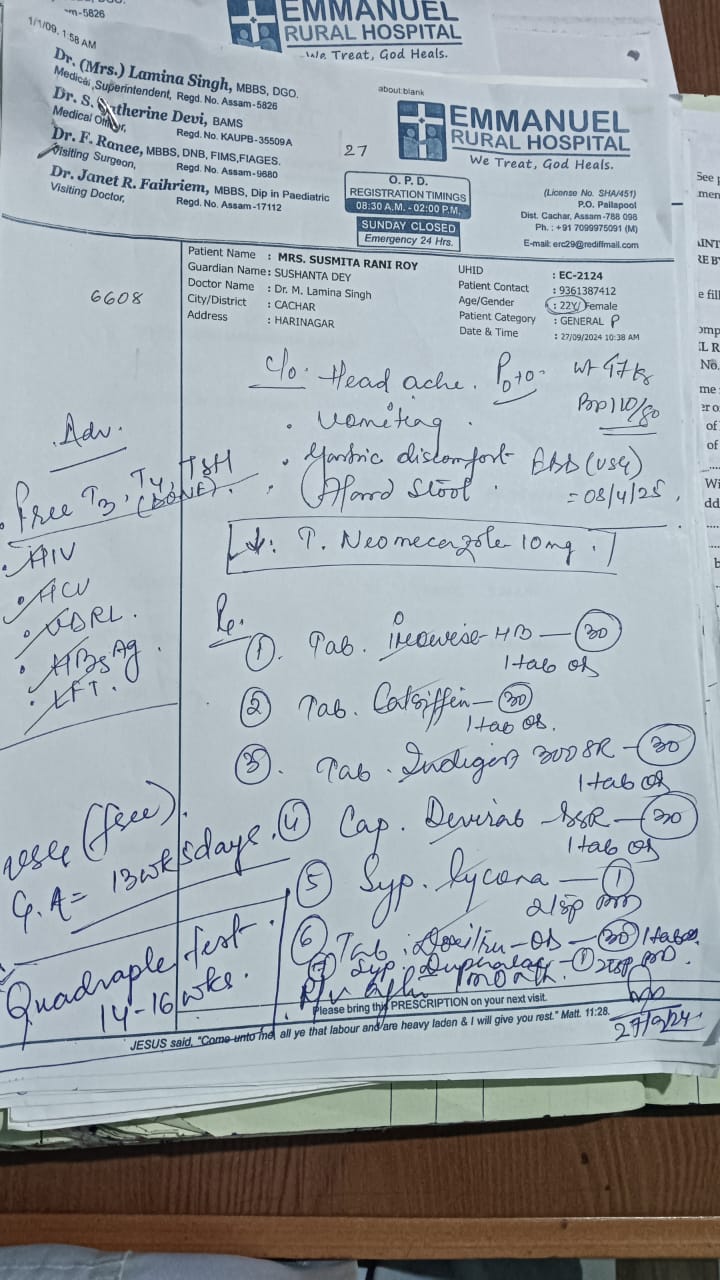 EMMANUEL
RURAL HOSPITAL
We Treat, God Heals.
-5826
1/1/09, 1:58 AM
about:blank
Dr. (Mrs.) Lamina Singh, MBBS, DGO.
Medical Superintendent, Regd. No. Assam-5826
Dr. S. Catherine Devi, BAMS
Medical Officer, Regd. No. KAUPB-35509A
Dr. F. Ranee, MBBS, DNB, FIMS,FIAGES.
Visiting Surgeon, Regd. No. Assam-9680
Dr. Janet R. Faihriem, MBBS, Dip in Paediatric
Visiting Doctor, Regd. No. Assam-17112
27
O. P. D.
REGISTRATION TIMINGS
08:30 A.M. - 02:00 P.M.
SUNDAY CLOSED
Emergency 24 Hrs.
EMMANUEL
RURAL HOSPITAL
We Treat, God Heals.
(License No. SHA/451)
P.O. Pailapool
Dist. Cachar, Assam-788 098
Ph. : +91 7099975091 (M)
E-mail: erc29@rediffmail.com
6608
Patient Name : MRS. SUSMITA RANI ROY
Guardian Name : SUSHANTA DEY
Doctor Name : Dr. M. Lamina Singh
City/District : CACHAR
Address : HARINAGAR
UHID : EC-2124
Patient Contact : 9361387412
Age/Gender : 22Y/ Female
Patient Category : GENERAL P
Date & Time : 27/09/2024 10:38 AM
c/o. Head ache. P0+0- wt 47 kg
Bp 110/80
. Vomiting.
. Gastric discomfort EDD (USG)
. Hard Stool. = 08/4/25.
↓: T. Neomercazole 10mg.
Adv.
. Free T3, T4, TSH
(DONE).
. HIV
. HCV
. VDRL.
. HBsAg.
. LFT.
USG (free).
G.A = 13wks days.
Quadraple test.
14-16 wks.
Rx.
1. Tab. HB — 30
1 tab od
2 Tab. — 30
1 tab od.
3. Tab. 300 SR — 30
1 tab od
4 Cap. SSR — 30
1 tab od
5 Syp. — 1
2tsp
6 Tab. - OD — 30 1 tab
7 Syp. Duphalac - 1 2tsp
R/v after 1 month.
27/9/24
Please bring this PRESCRIPTION on your next visit.
JESUS said, "Come unto me, all ye that labour and are heavy laden & I will give you rest." Matt. 11:28.